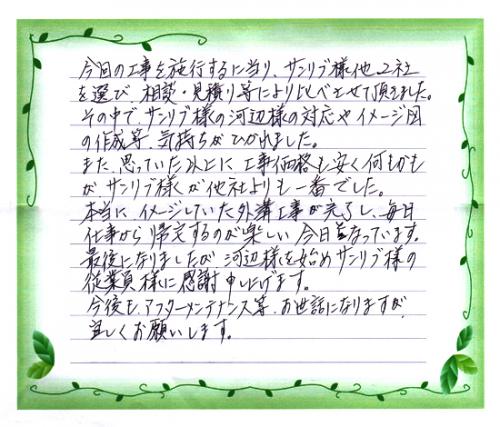 今回の工事を施行するに当り、サンリブ様他2社
を選び、相談・見積り等により比べさせて頂きました。
その中で、サンリブ様の河辺様の対応やイメージ図
の作成等、気持ちがひかれました。
また、思っていた以上に、工事価格も安く何もかも
がサンリブ様が他社よりも一番でした。
本当に、イメージしていた外溝工事が完了し、毎日
仕事から帰宅するのが楽しい今日となっています。
最後になりましたが、河辺様を始めサンリブ様の
従業員様に感謝申し上げます。
今後も、アフターメンテナンス等、お世話になりますが、
宜しくお願いします。